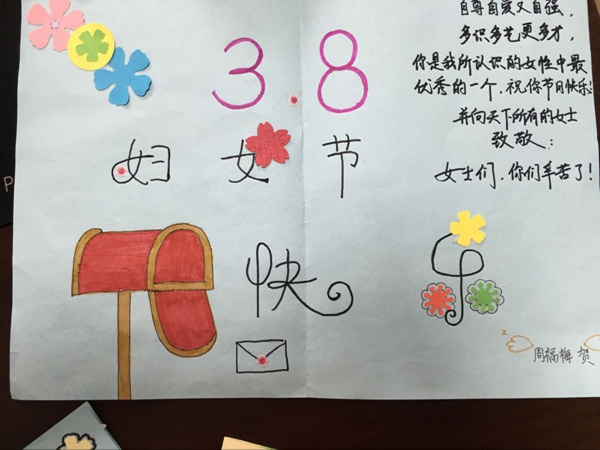 3.8
妇女节
快乐
自尊自爱又自强,
多识多艺更多才,
你是我所认识的女性中最
优秀的一个,祝你节日快乐!
并向天下所有的女士
致敬:
女士们,你们辛苦了!
周福梅 贺